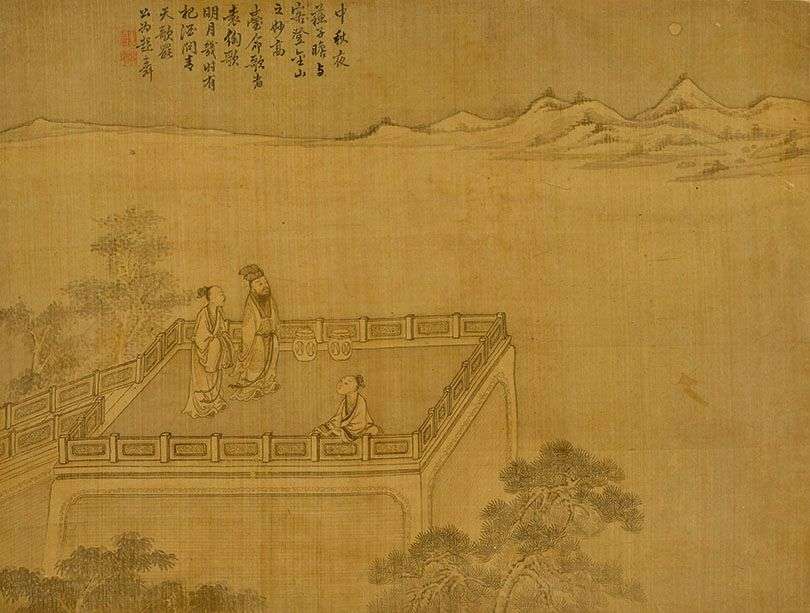 中秋夜
蘇子瞻与
客登金山
之妙高
臺命歌者
袁綯歌
明月幾时有
把酒问青
天歌罷
公为起舞